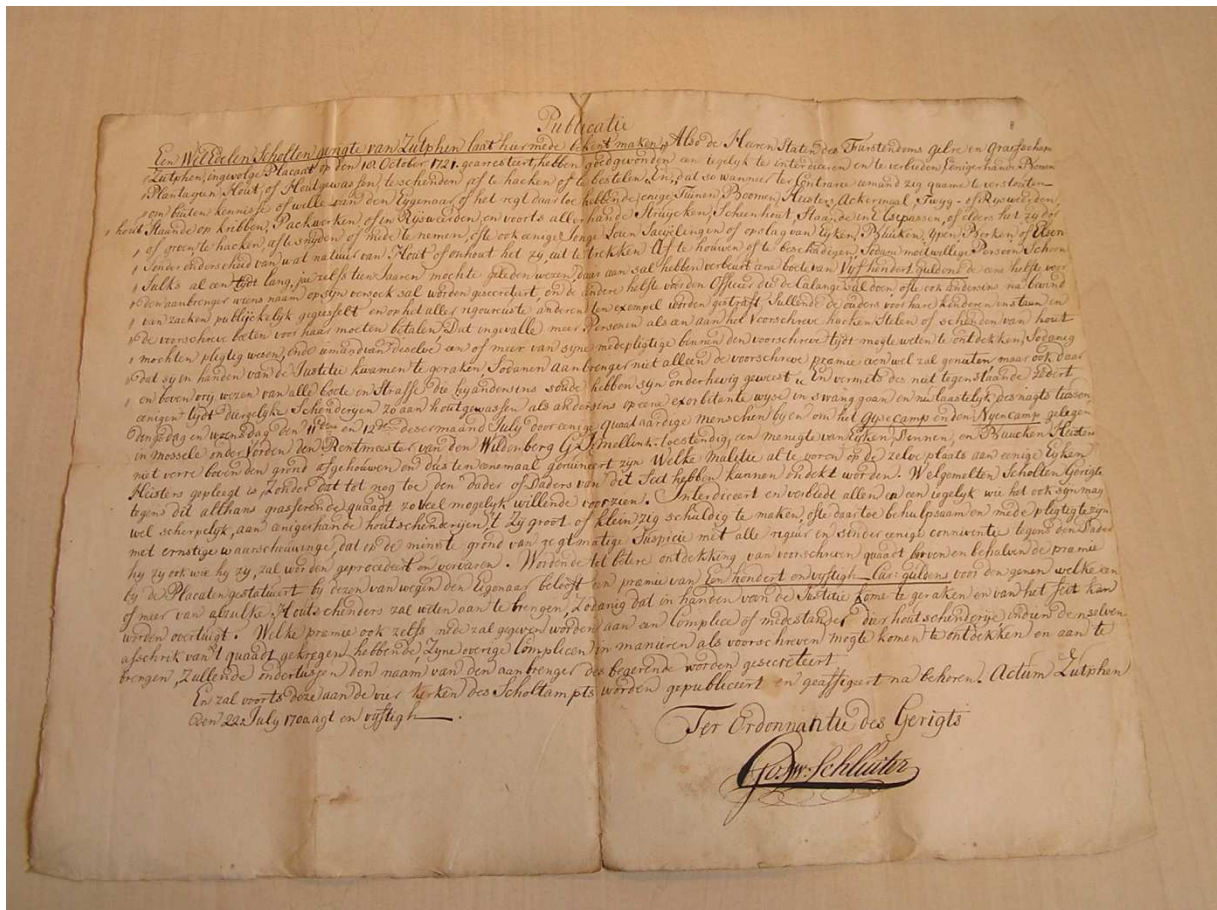 Publicatie
Een WelEdelen Scholten gerigte van Zutphen laat hiermede bekent maken, Also de Heeren Staten des Furstendoms Gelre en Graefschem
Zutphen, ingevolge Placaat op den 10 October 1721. gearresteert, hebben goedgevonden een iegelyk te interdiceren en te verbieden, Eenigerhand Bomen
Plantagien, Hout, of Houtgewassen, te schenden af te hacken of te bestelen, En, dat so wanneer ter Contrarie iemand zig quame te verstouten
om buiten kennisse of wille van den Eygenaar of het regt daar toe hebbende, enige Tuinen, Boomen, Heisters, Ackermaal, Twyg- of Rysweerden,
hout Staande op kribben, Packwerken of in Rijsweerden, en voorts allerhande Struycken, Scheenhout, Staande in of elders het zy dor
of groen te hacken, af te snyden of mede te nemen, ofte ook eenige Jonge Loten Saeyelingen of opslag van Eyken, Bueken, Ypen Berken of Elsen
Sonder onderscheid van wat natuir van Hout of onhout het zij uit te trekken Af te houwen of te beschadigen, Sodane moetwillige Persoon Schoon
Sulks al een tydt lang, jae zelfs tien Jaaren mochte geleden wezen, daar aan sal hebben verbeurt eene boete van Vyf hondert guldens de eene helfte voor
den aanbrenger wiens naam op syn versoek sal worden gesecreteert, en de andere helfte voor den Officier die de Calange sal doen ofte ook andersins na bevind
van zacken publijckelyk gegesselt en op het aller rigoureuste anderen ten exempel worden gestraft, Sullende de ouders voor hare kenderen instaen en
de voorschreve boeten voor haar moeten betalen, Dat ingevalle meer Personen als een aan het Voorschreve hacken Stelen of schenden van hout
mochten pligtig wesen, ende iemand van deselve, een of meer van syne medepligtige binnen den voorschreve tijdt mogte weten te ontdekken, Sodaneg
dat sy in handen van de Justitie kwamen te geraken, Sodanen aanbrenger niet alleen de voorschreve premie even wel zal genieten, maar ook daar
en boven vry wezen van alle boete en Straffe die hy andersins soude hebben syn onderhevig geweest; En vermits des niet tegenstaande zedert
eenigen tydt diergelyke Schenderyen zo aan houtgewassen als andersins op eene exorbitante wyse in swang gaan en nu laastelyk des nagts tussen
dingsdag en woensdag den 11den en 12de deser maand July door eenige quaadaardige menschen by en om het Gysecamp en den Nyencamp gelegen
in Mossele onder Vorden den Rentmeester van den Wildenberg G: toestendig, een menigte van Eyken, Dennen, en Buucken Heisters
niet verre boven den grond afgehouwen en dus ten eenemaal geruineert zyn Welke Malitie al te voren op de zelve plaats aan eenige Eyken
Heisters gepleegt is, Zonder dat tot nog toe den dader of Daders van dit Feit hebben kunnen ondekt worden. Welgemelten Scholten Gerigte
tegens dit althans grasserende quaadt zo veel mogelyk willende voorzien. Interdiceert en verbiedt allen en een iegelyk wie het ook syn may
wel scherpelyk, aan enigerhande houtschenderijen, 't Zy groot of klein zig schuldig te maken, ofte daartoe behulpsaam en mede plegtig te zyn
met ernstige waarschouwinge, dat op de minste grond van regtmatige Suspicie met alle rigeur en sonder eenige conniventie tegens den Dader
hy zy ook wie hy zy, zal worden geprocedeert en vervaren. Wordende tot betere ontdekking van voorschreven quaadt boven en behalven de præmie
by de Placaten gestatueert by dezen van wegen den Eigenaar belooft een præmie van Een hondert en vyftigh Car: guldens voor den genen welke een
of meer van alzulke Houtschenders zal weten aan te brengen, Zodanig dat in handen van de Justitie kome te geraken en van het feit kan
worden overtuigt. Welke præmie ook zelfs mede zal gegeven worden aan een Complice of medestander dier houtschenderije indien de zelven
afschrik van't quaadt gekregen hebbende, Zyne overige Complicen in manieren als voorschreven mogte komen te ontdekken en aan te
brengen, Zullende ondertussen den naam van den aanbrenger des begerende worden gesecreteert
En zal voorts deze aan de vier kerken des Scholtampts worden gepubliceert en geaffigeert na behoren. Actum Zutphen
den 22 July 1700 agt en vyftigh.
Ter Ordonnantie des Gerigts
Gosw: Schluiter